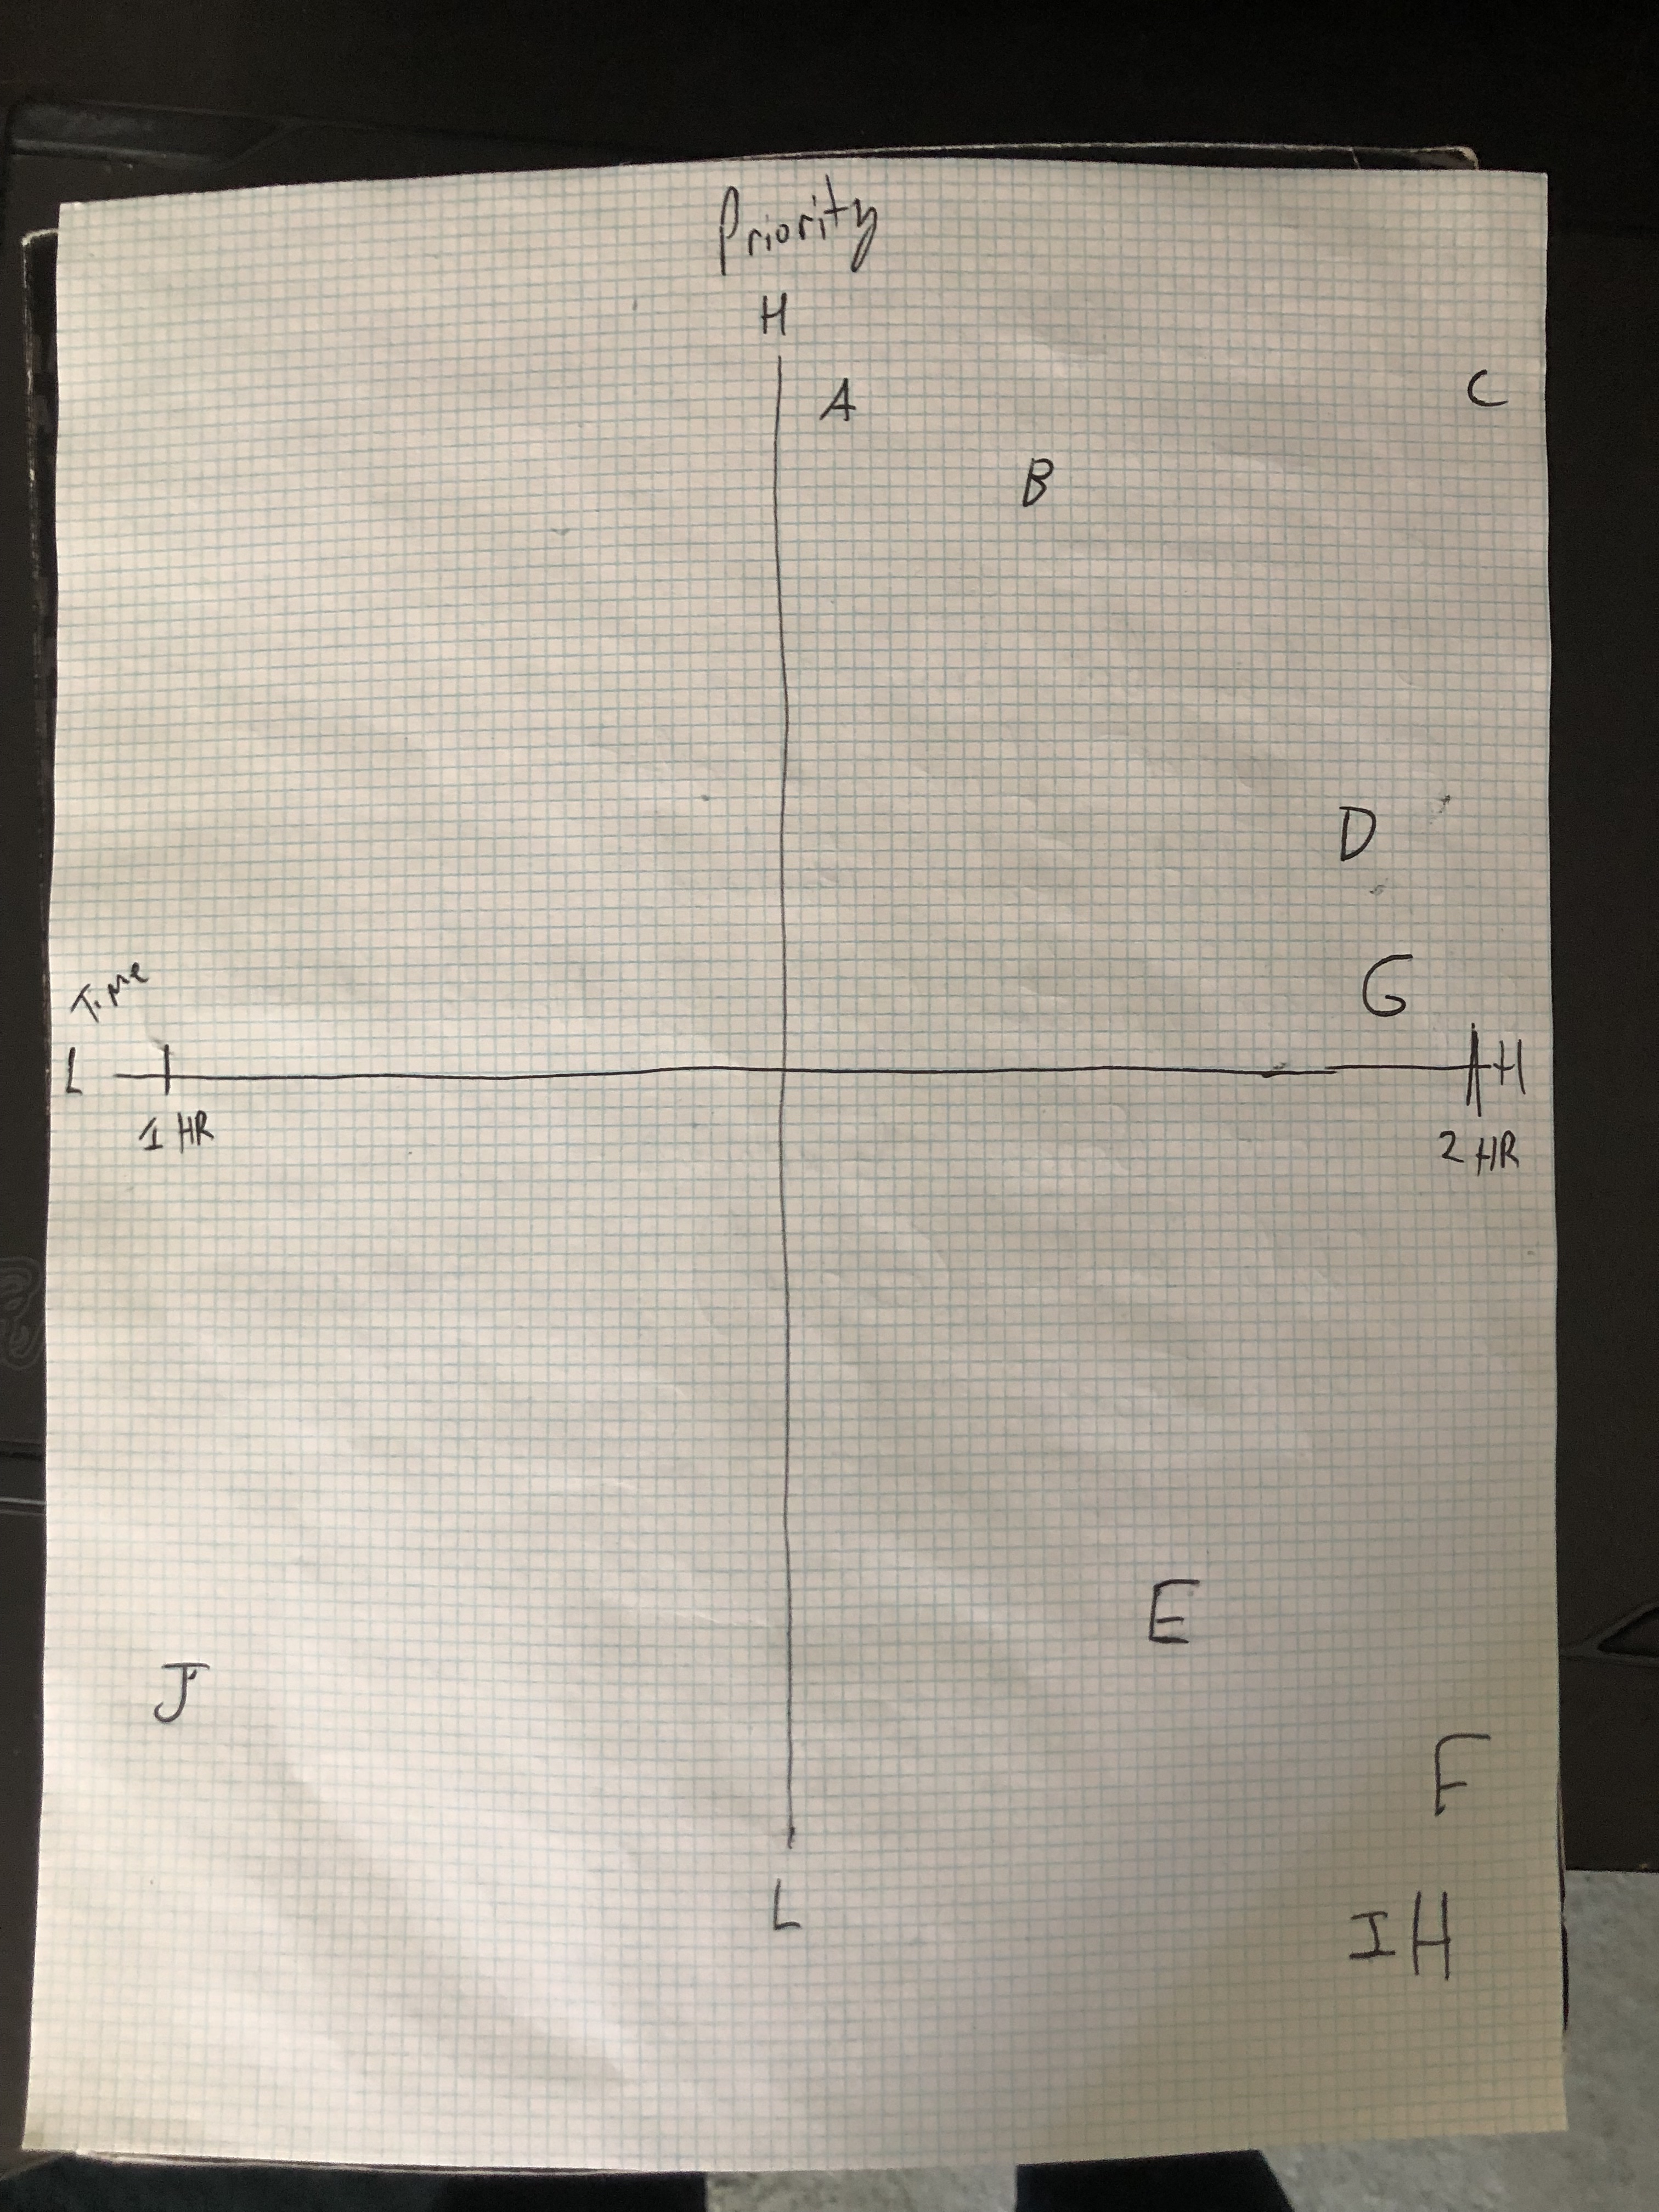 Priority
H
A
C
B
D
G
Time
L
H
1 HR
2 HR
E
J
F
L
I H